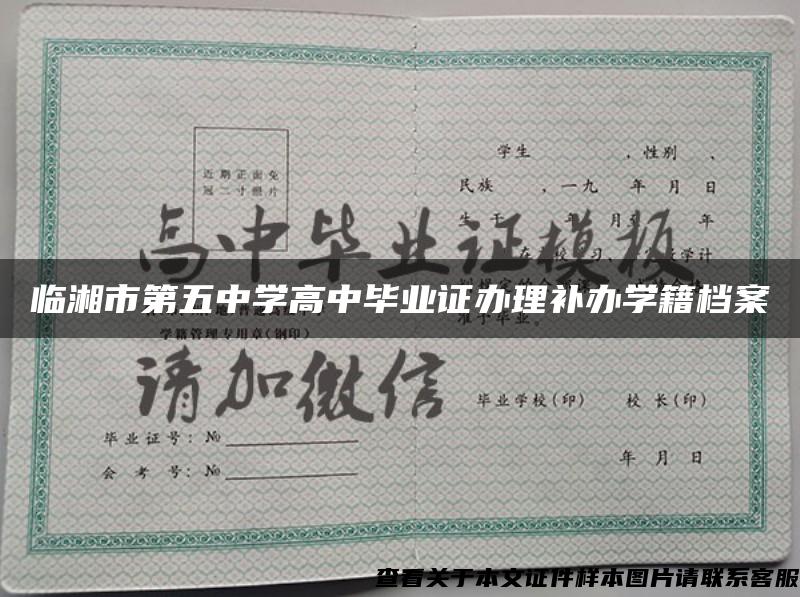 近期正面免
冠二寸照片
学籍管理专用章(钢印)
毕业证号：№
会考号：№
学生 ，性别 、
民族 ，一九 年 月 日
生于 年 月至 年
准予毕业。
毕业学校(印) 校长(印)
年 月 日
高中毕业证模板
请加微信
临湘市第五中学高中毕业证办理补办学籍档案
查看关于本文证件样本图片请联系客服